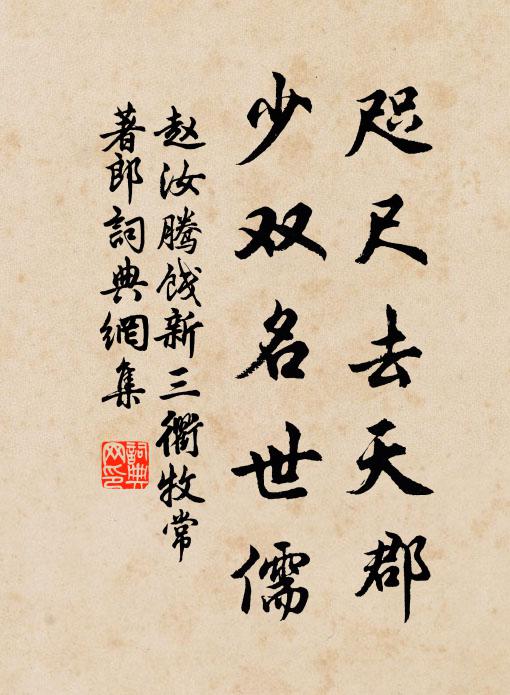 咫尺去天郡
少双名世儒
赵汝腾饯新三衢牧常
著郎詞典網集
詞典
网印